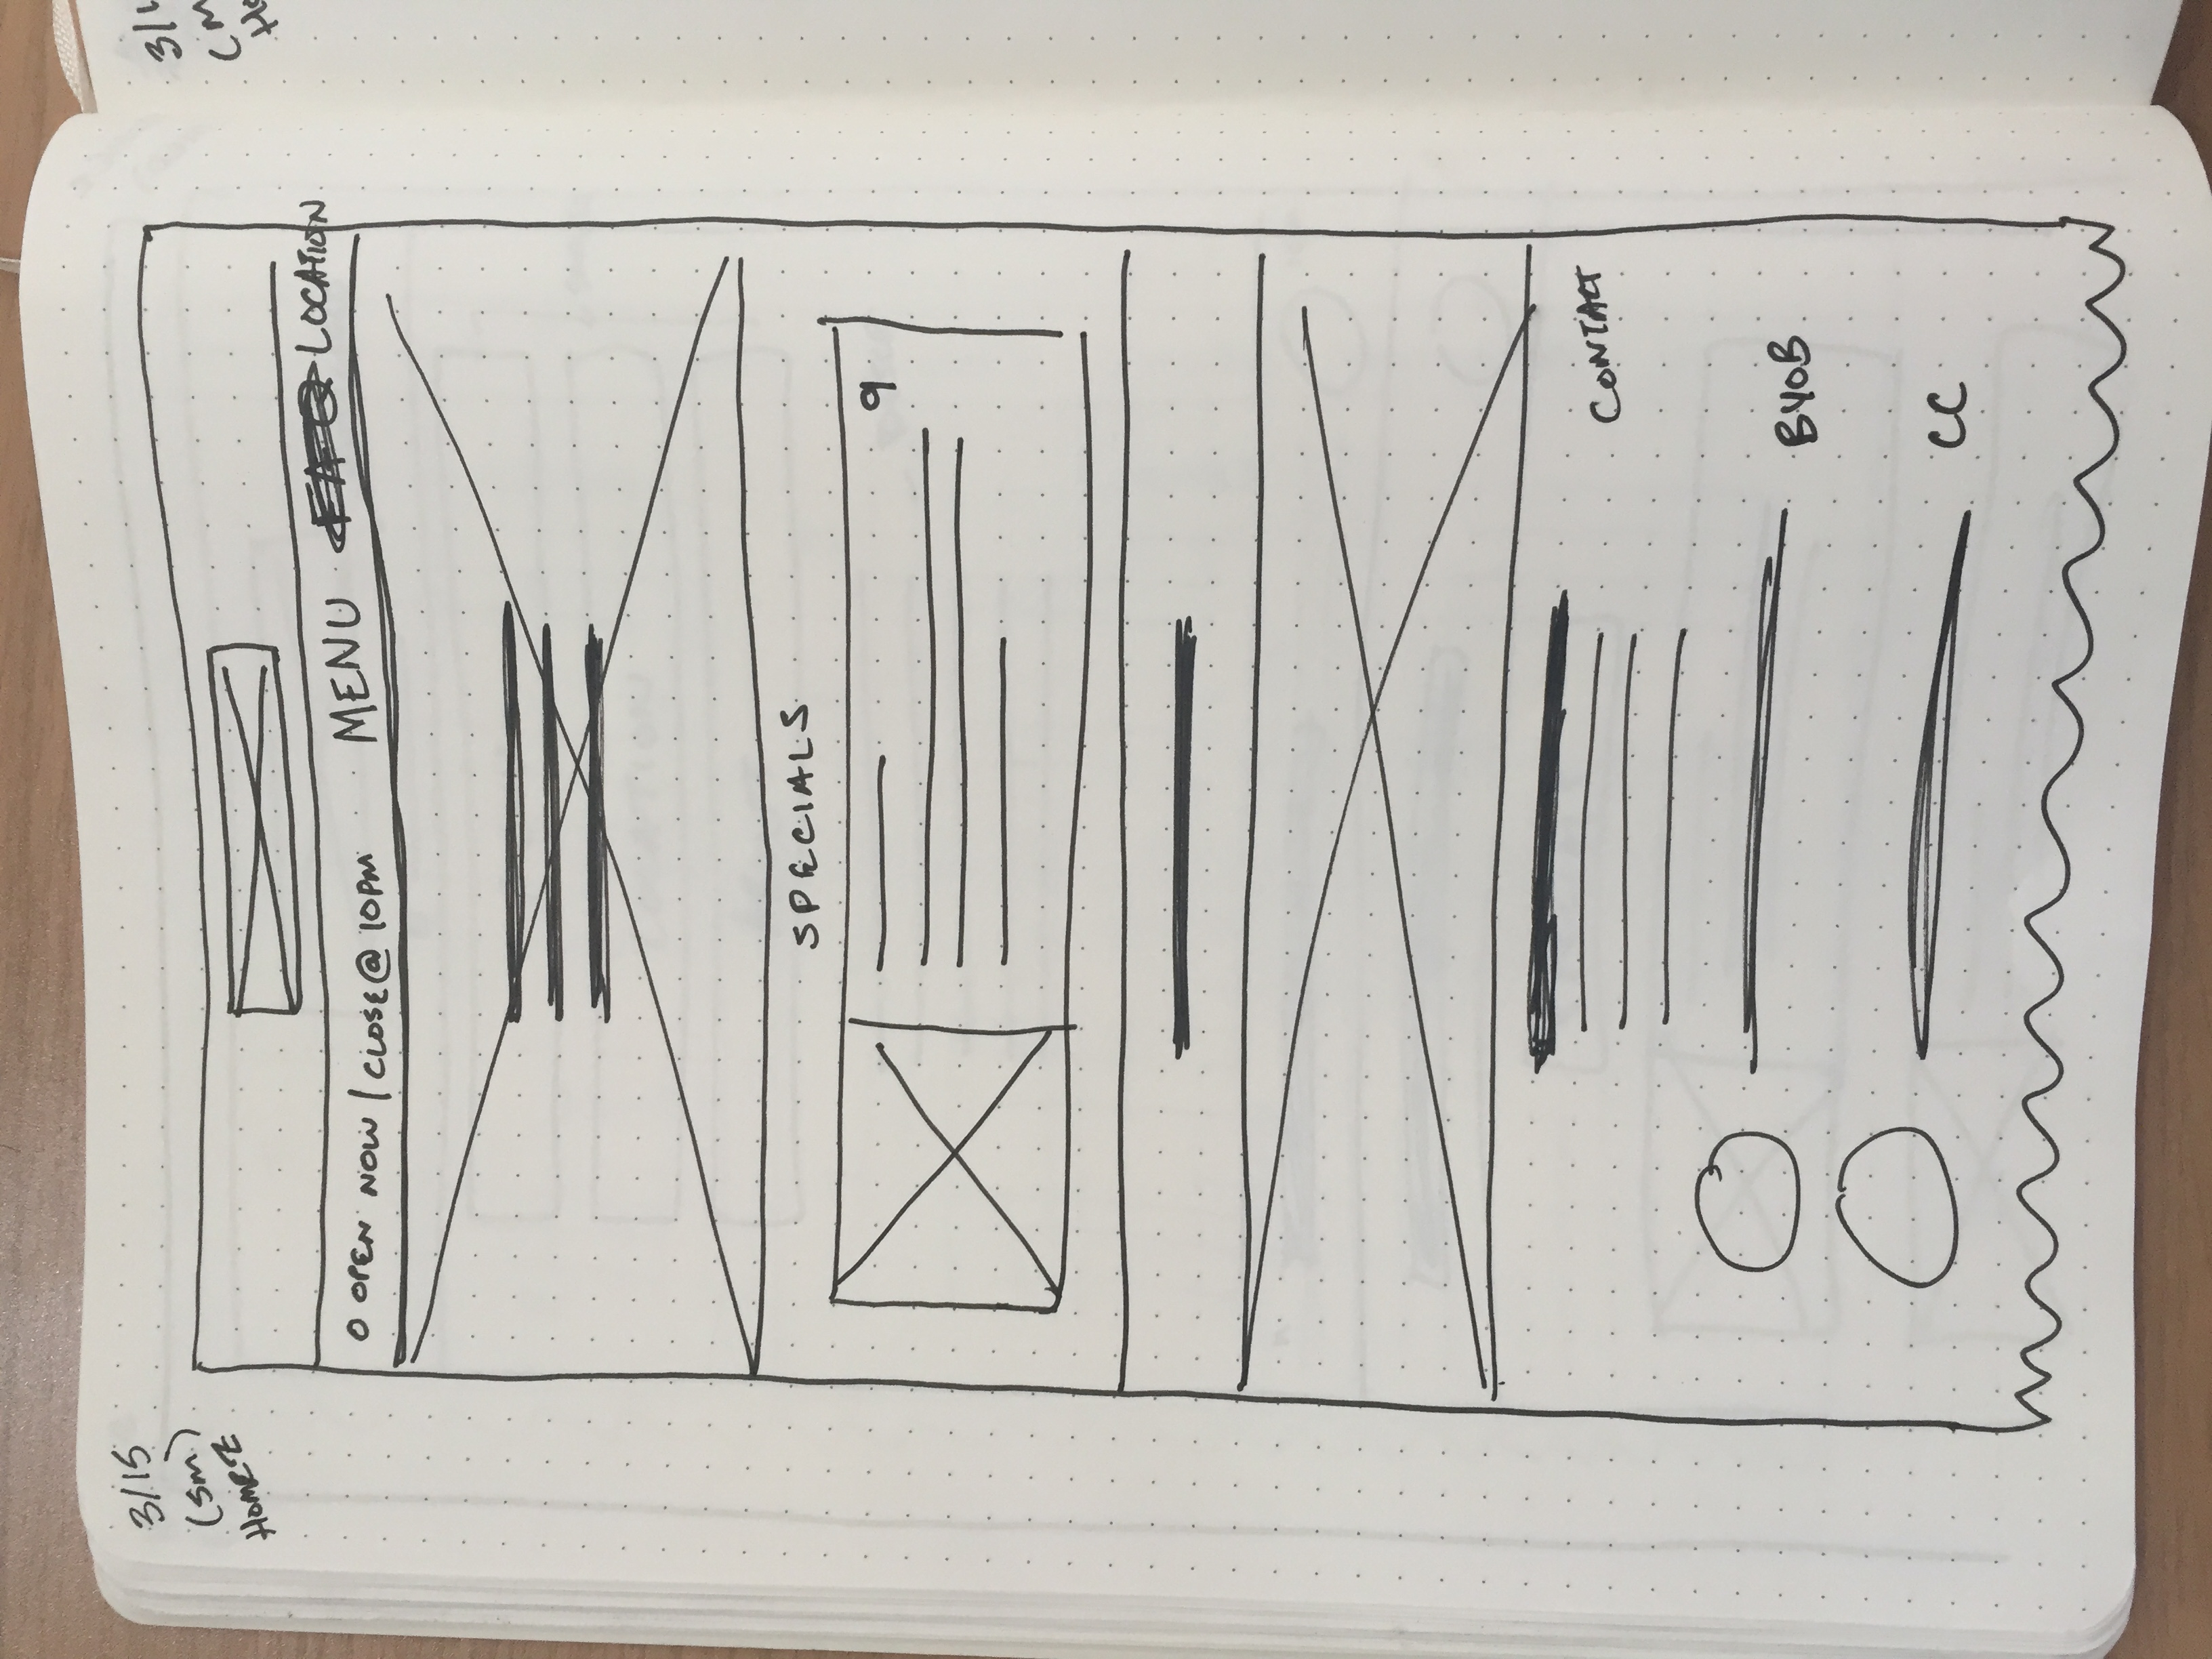 3/15
(sm)
HOME
O OPEN NOW | CLOSE@ 10PM MENU FAQ LOCATION
SPECIALS
9
CONTACT
BYOB
CC
3/1
(M
Ho